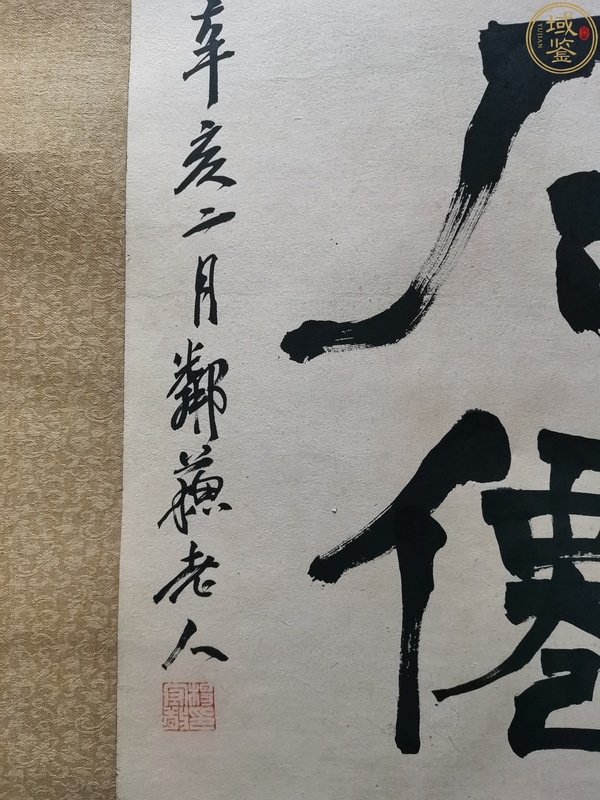 僊
辛亥二月鄰蘇老人
域鉴
YUJIAN